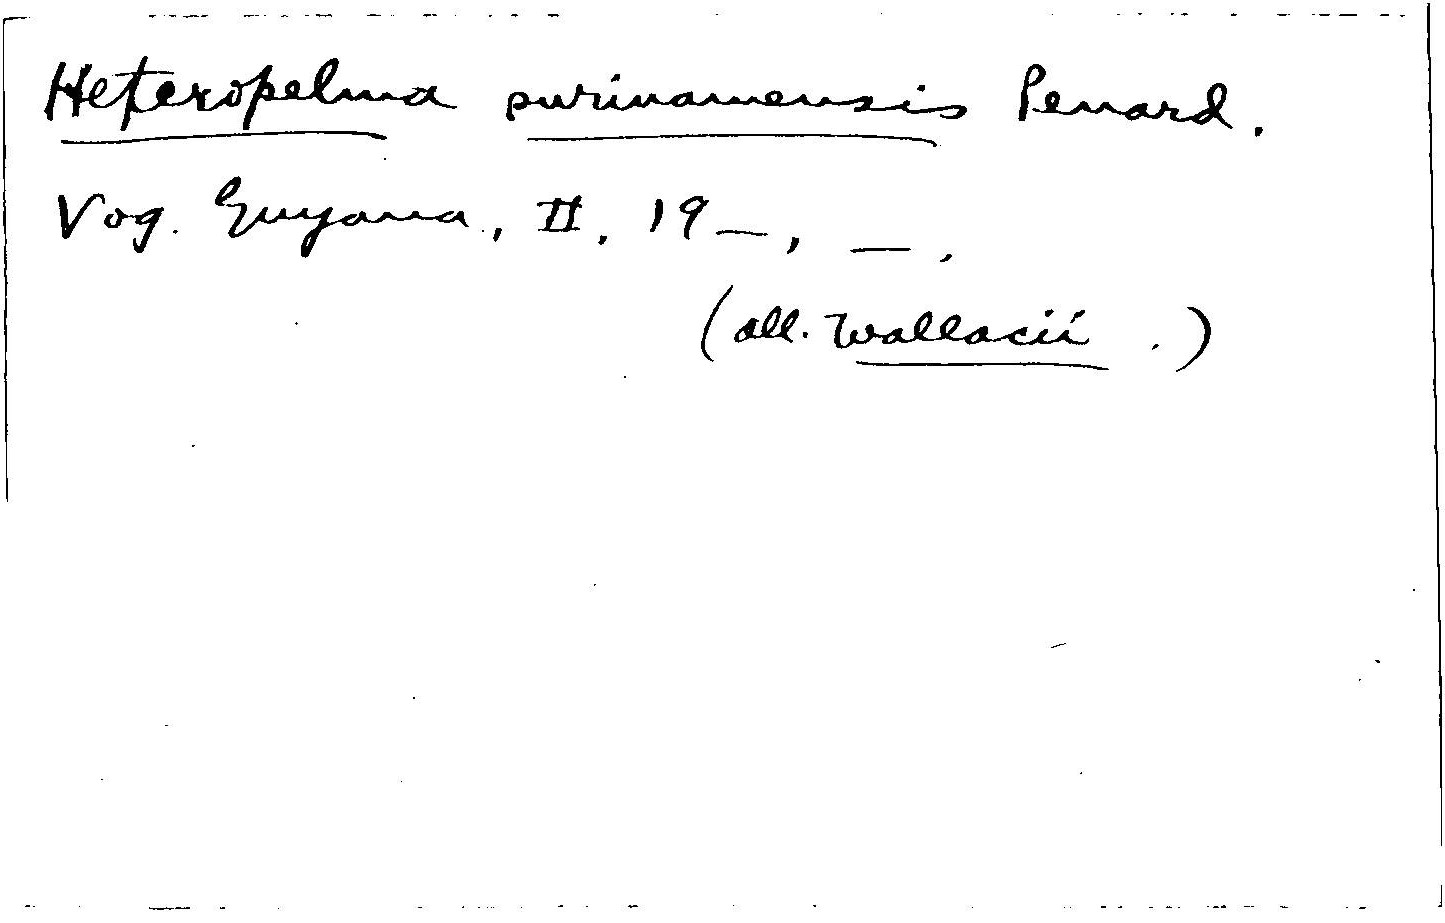 Heteropelma surinamensis Penard.
Vog. Guyana., II, 19—, —,
(all. Wallacii .)